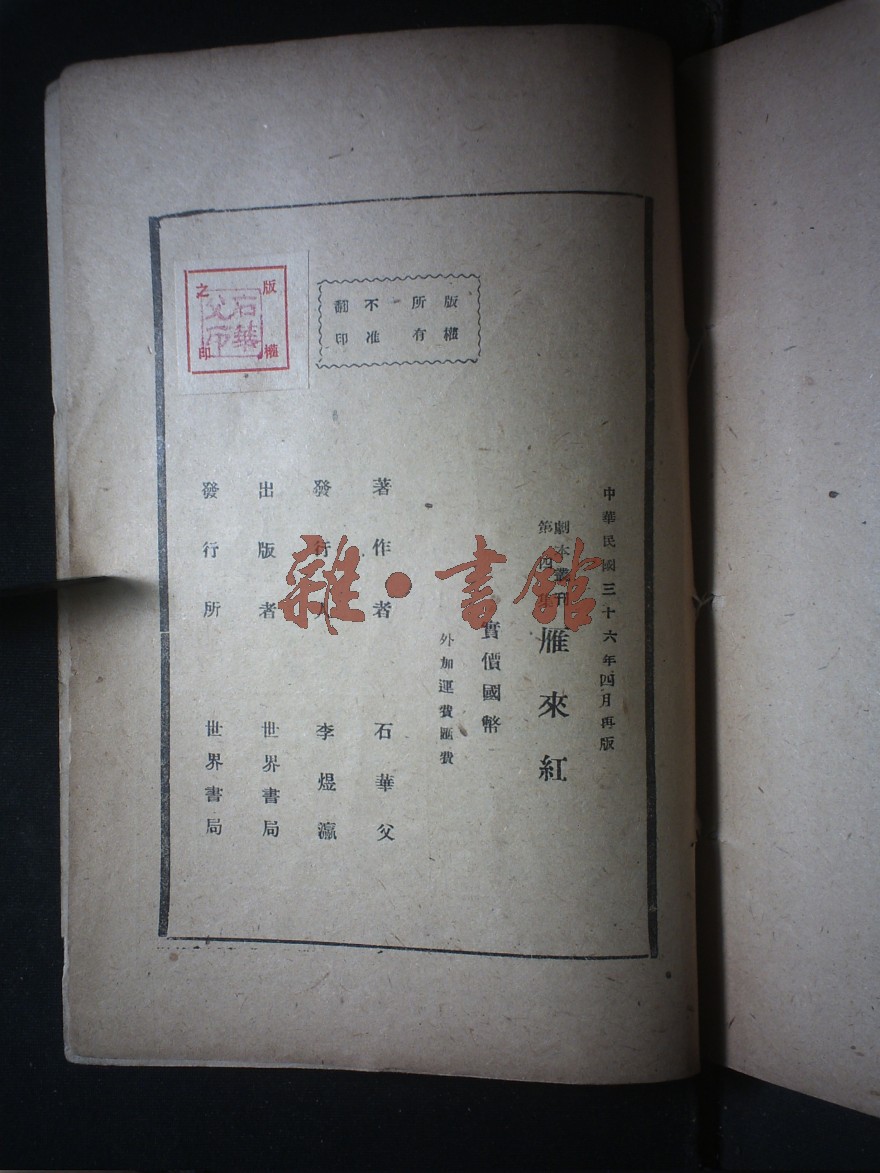 中華民國三十六年四月再版
劇本叢刊
第四集
雁來紅
實價國幣
外加運費匯費
版權所有
不准翻印
著作者 石華父
發行人 李煜瀛
出版者 世界書局
發行所 世界書局
版權之印
石華父印
雜·書館